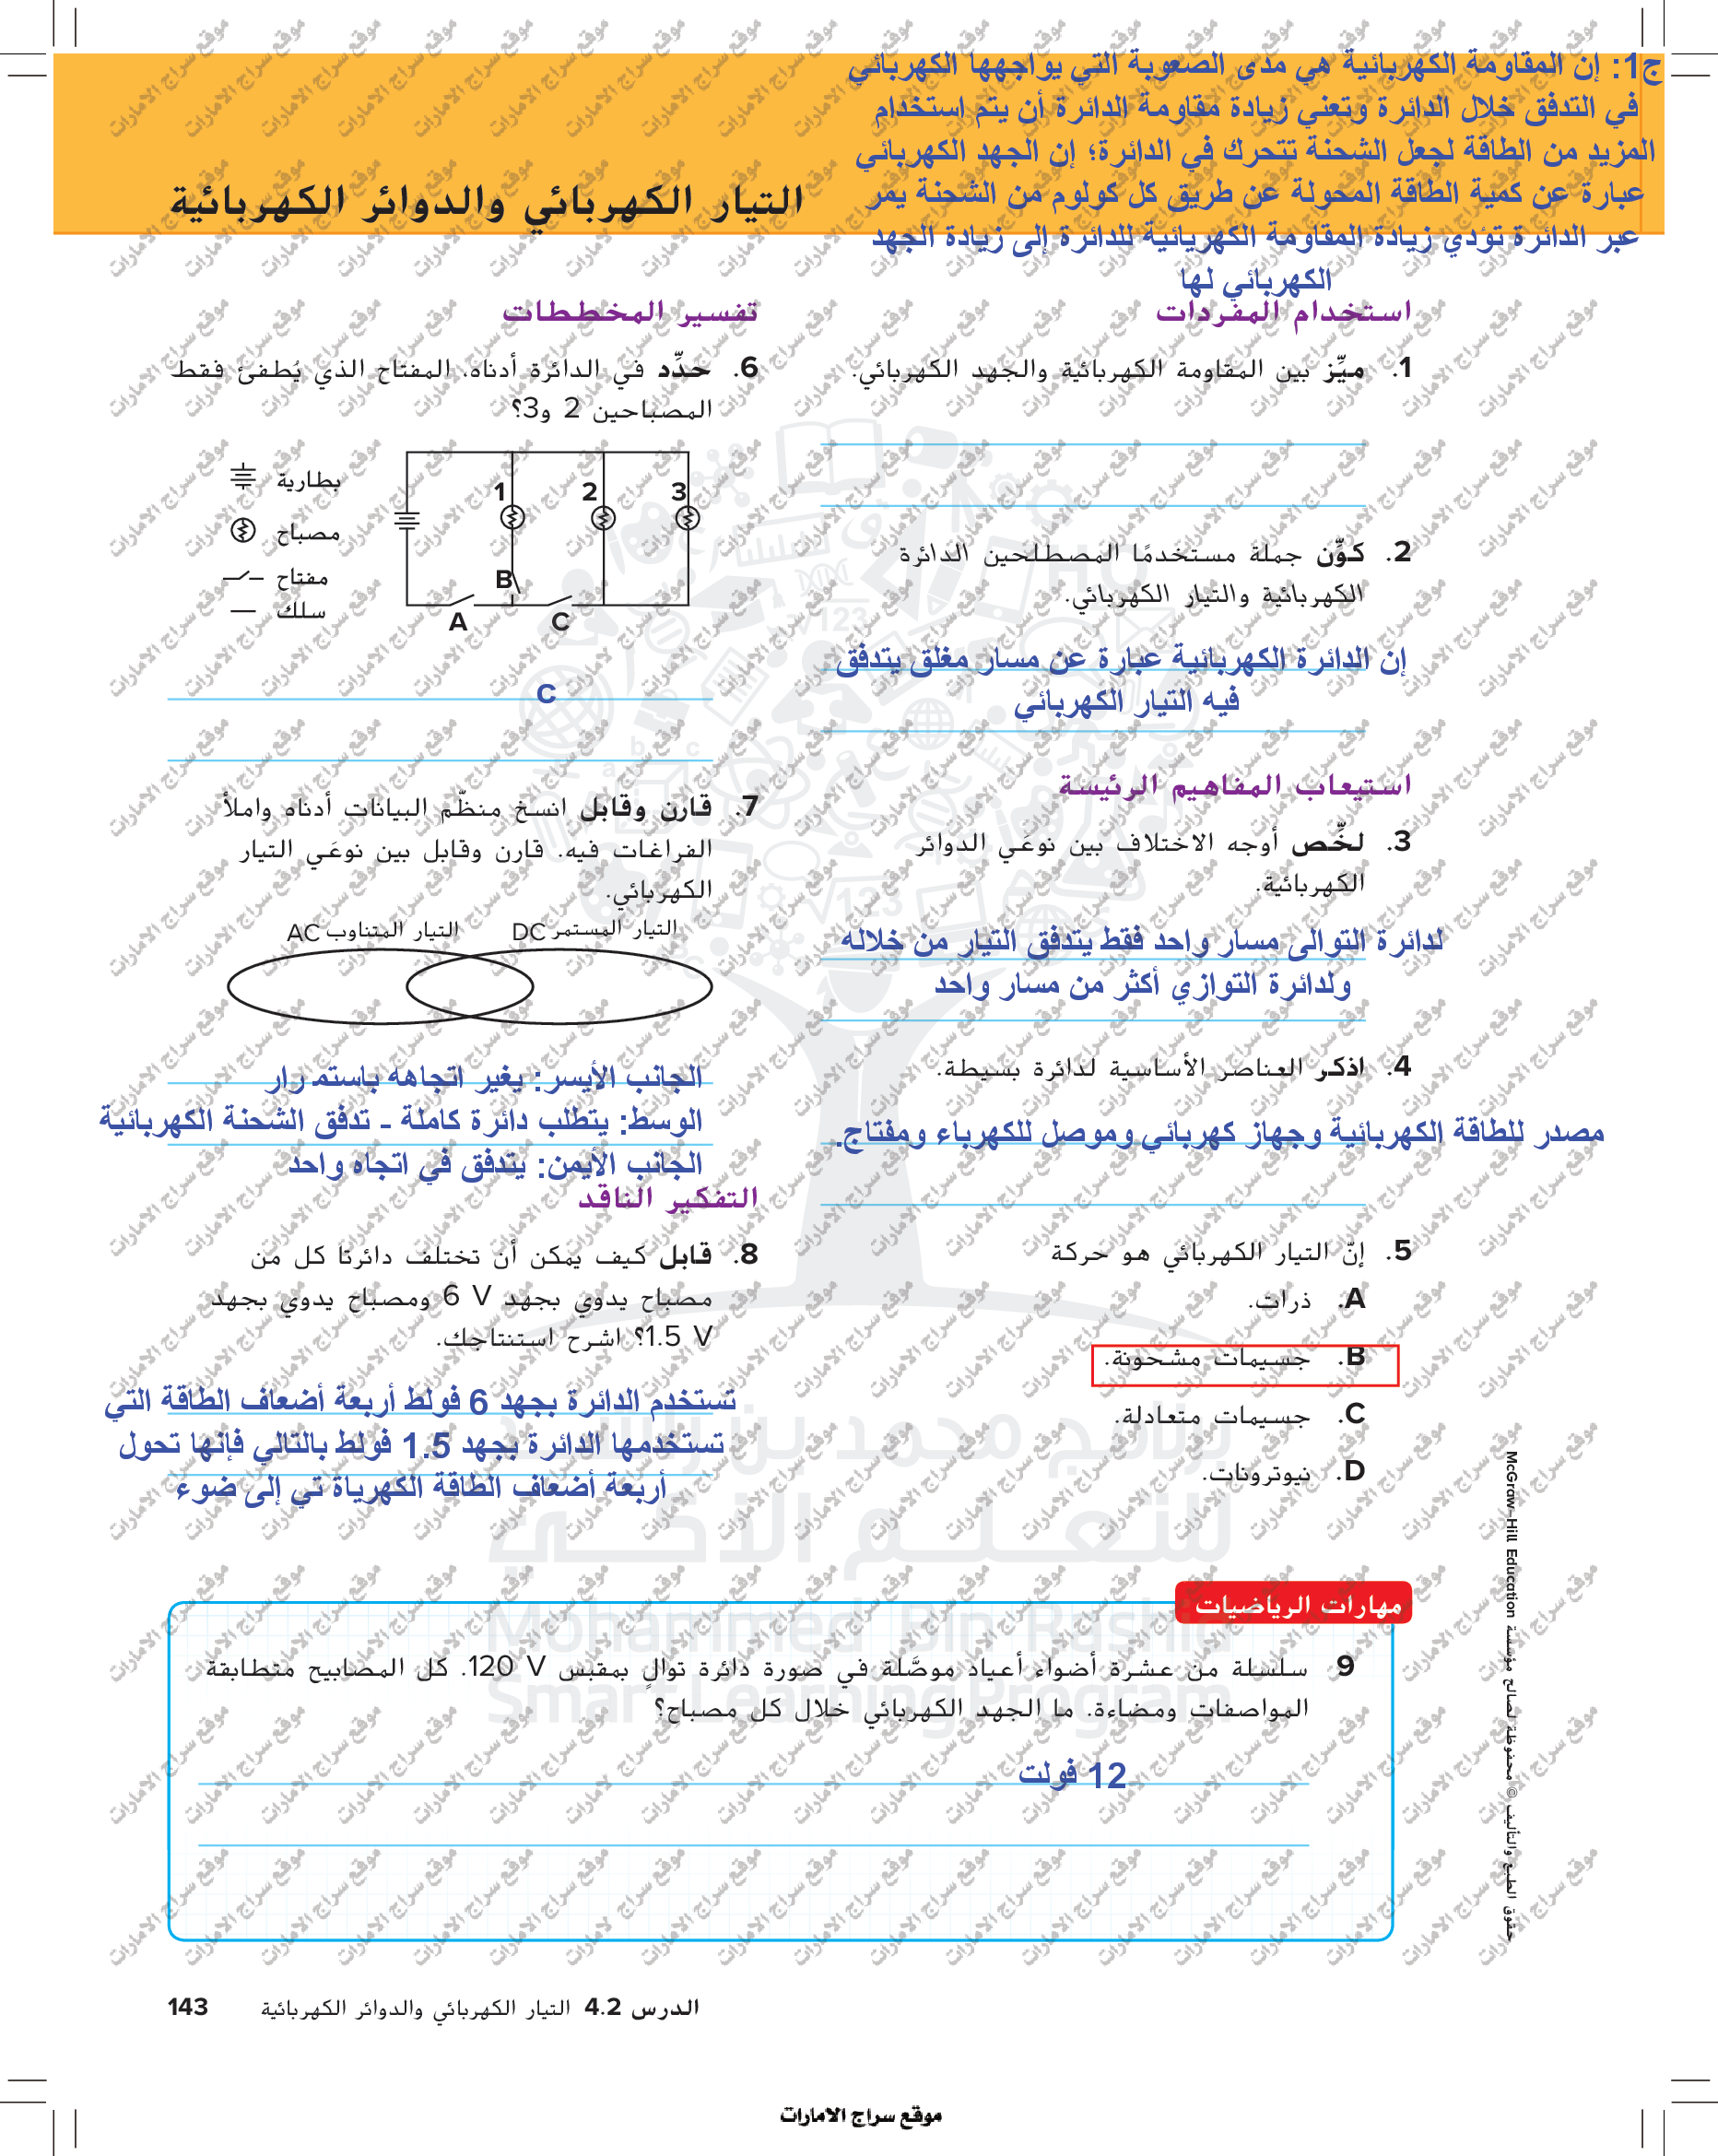 ج1: إن المقاومة الكهربائية هي مدى الصعوبة التي يواجهها الكهربائي
في التدفق خلال الدائرة وتعني زيادة مقاومة الدائرة أن يتم استخدام
المزيد من الطاقة لجعل الشحنة تتحرك في الدائرة؛ إن الجهد الكهربائي
عبارة عن كمية الطاقة المحولة عن طريق كل كولوم من الشحنة يمر
عبر الدائرة تؤدي زيادة المقاومة الكهربائية للدائرة إلى زيادة الجهد
الكهربائي لها
التيار الكهربائي والدوائر الكهربائية
استخدام المفردات
1. ميِّز بين المقاومة الكهربائية والجهد الكهربائي.
2. كوِّن جملة مستخدمًا المصطلحين الدائرة
الكهربائية والتيار الكهربائي.
إن الدائرة الكهربائية عبارة عن مسار مغلق يتدفق
فيه التيار الكهربائي
استيعاب المفاهيم الرئيسة
3. لخِّص أوجه الاختلاف بين نوعَي الدوائر
الكهربائية.
لدائرة التوالى مسار واحد فقط يتدفق التيار من خلاله
ولدائرة التوازي أكثر من مسار واحد
4. اذكر العناصر الأساسية لدائرة بسيطة.
مصدر للطاقة الكهربائية وجهاز كهربائي وموصل للكهرباء ومفتاح.
5. إنّ التيار الكهربائي هو حركة
A. ذرات.
B. جسيمات مشحونة.
C. جسيمات متعادلة.
D. نيوترونات.
تفسير المخططات
6. حدِّد في الدائرة أدناه، المفتاح الذي يُطفئ فقط
المصباحين 2 و3؟
بطارية
مصباح
مفتاح
سلك
1 2 3
B
A C
C
7. قارن وقابل انسخ منظّم البيانات أدناه واملأ
الفراغات فيه. قارن وقابل بين نوعَي التيار
الكهربائي.
التيار المستمر DC التيار المتناوب AC
الجانب الأيسر: يغير اتجاهه باستمرار
الوسط: يتطلب دائرة كاملة - تدفق الشحنة الكهربائية
الجانب الأيمن: يتدفق في اتجاه واحد
التفكير الناقد
8. قابل كيف يمكن أن تختلف دائرتا كل من
مصباح يدوي بجهد 6 V ومصباح يدوي بجهد
1.5 V؟ اشرح استنتاجك.
تستخدم الدائرة بجهد 6 فولط أربعة أضعاف الطاقة التي
تستخدمها الدائرة بجهد 1.5 فولط بالتالي فإنها تحول
أربعة أضعاف الطاقة الكهرباة تي إلى ضوء
مهارات الرياضيات
9 سلسلة من عشرة أضواء أعياد موصَّلة في صورة دائرة توالٍ بمقبس 120 V. كل المصابيح متطابقة
المواصفات ومضاءة. ما الجهد الكهربائي خلال كل مصباح؟
12 فولت
حقوق الطبع والتأليف © محفوظة لصالح مؤسسة McGraw-Hill Education
برنامج محمد بن راشد
للتعلم الذكي
Mohammed Bin Rashid
Smart Learning Program
الدرس 4.2 التيار الكهربائي والدوائر الكهربائية 143
موقع سراج الامارات